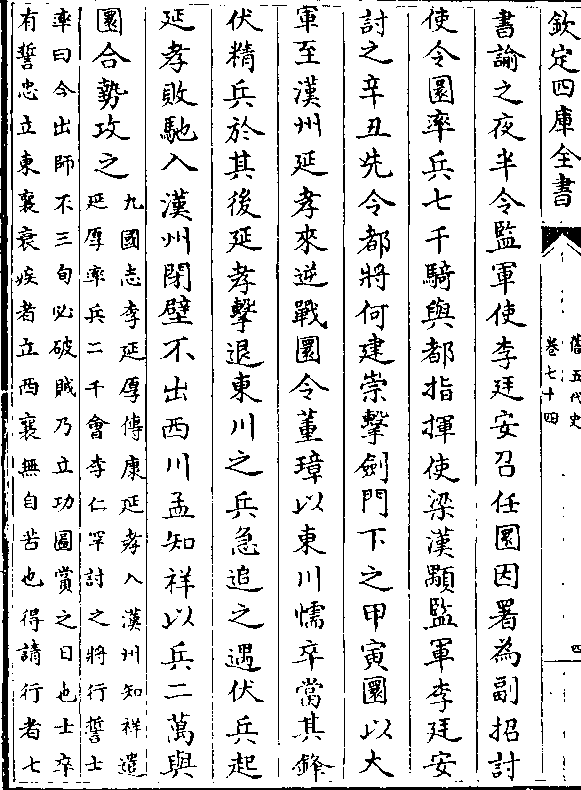 欽定四庫全書
舊五代史
卷七十四
四
書諭之夜半令監軍使李廷安召任圜因署為副招討
使令圜率兵七千騎與都指揮使梁漢顒監軍李廷安
討之辛丑先令都將何建崇擊劍門下之甲寅圜以大
軍至漢州延孝來逆戰圜令董璋以東川懦卒當其鋒
伏精兵於其後延孝擊退東川之兵急追之遇伏兵起
延孝敗馳入漢州閉壁不出西川孟知祥以兵二萬與
圜合勢攻之
九國志李延厚傳康延孝入漢州知祥遣
延厚率兵二千會李仁罕討之將行誓士
率曰今出師不三旬必破賊乃立功圖賞之日也士卒
有誓忠立東裵衰疾者立西裵無自苦也得請行者七